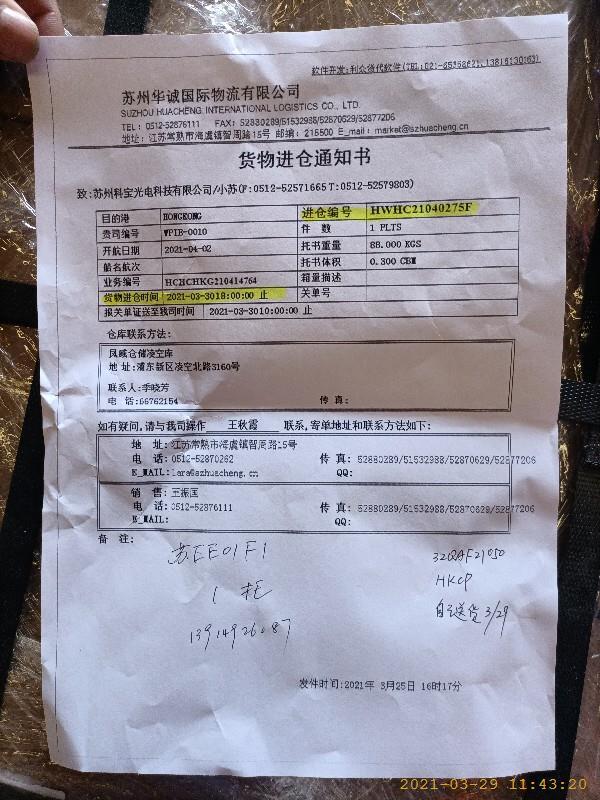 软件开发:利众货代软件(TEL:021-65358621,13816130163)
苏州华诚国际物流有限公司
SUZHOU HUACHENG INTERNATIONAL LOGISTICS CO., LTD.
TEL: 0512-52876111 FAX: 52880289/51532988/52870629/52877206
地址: 江苏常熟市海虞镇智周路15号 邮编: 215500 E_mail: market@szhuacheng.cn
货物进仓通知书
致:苏州科宝光电科技有限公司/小苏(F:0512-52571665 T:0512-52579803)
目的港 HONGKONG 进仓编号 HWHC21040275F
贵司编号 WPIB-0010 件 数 1 PLTS
开航日期 2021-04-02 托书重量 88.000 KGS
船名航次 托书体积 0.300 CBM
业务编号 HCHCHKG210414764 箱量描述
货物进仓时间 2021-03-3018:00:00 止 关单号
报关单证送至我司时间 2021-03-3010:00:00 止
仓库联系方法:
凤威仓储凌空库
地 址:浦东新区凌空北路3160号
联系人:季晓芳
电 话:66762154 传 真:
如有疑问,请与我司操作 王秋霞 联系,寄单地址和联系方法如下:
地 址:江苏常熟市海虞镇智周路15号
电 话:0512-52870262 传 真: 52880289/51532988/52870629/52877206
E_MAIL:lara@szhuacheng.cn QQ:
销 售:王振国
电 话:0512-52876111 传 真: 52880289/51532988/52870629/52877206
E_MAIL: QQ:
备 注:
苏EE01F1
1 托
32QAF21050
HKCP
自己送货 3/29
发件时间:2021年 3月25日 16时17分
2021-03-29 11:43:20